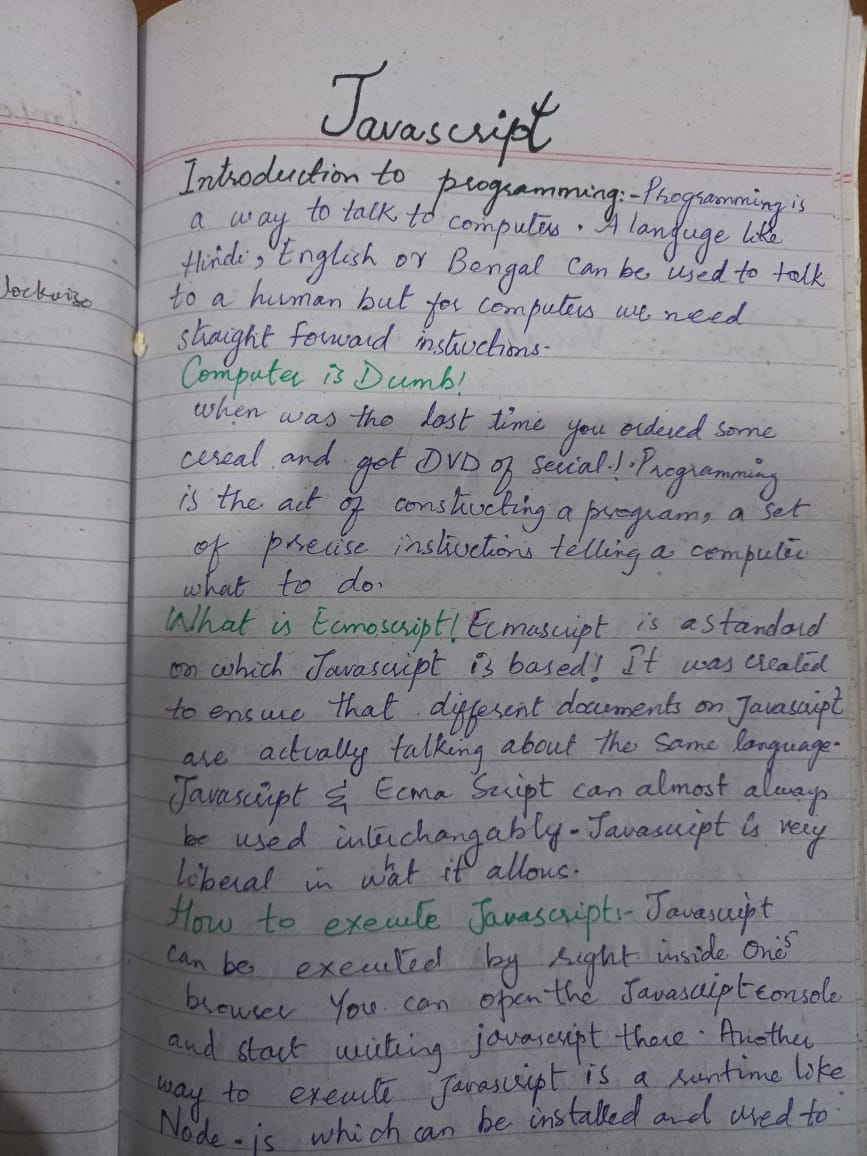 Javascript
Introduction to programming:- Programming is
a way to talk to computers. A languge like
Hindi, English or Bengal Can be used to talk
lockwise
to a human but for computers we need
straight forward instructions-
Computer is Dumb!
When was the last time you ordered some
cereal and got DVD of serial.! Programming
is the act of constructing a program, a set
of precise instructions telling a computer
what to do.
What is Ecmoscript! Ecmascript is a standard
on which Javascript is based! It was created
to ensure that different documents on Javascript
are actually talking about the same language-
Javascript & Ecma Script can almost always
be used interchangably-Javascript is very
liberal in what it allows.
How to execute Javascript:- Javascript
can be executed by right inside One's
browser You can open the Javascript console
and start writing javascript there. Another
way to execute Javascript is a runtime like
Node.js which can be installed and used to